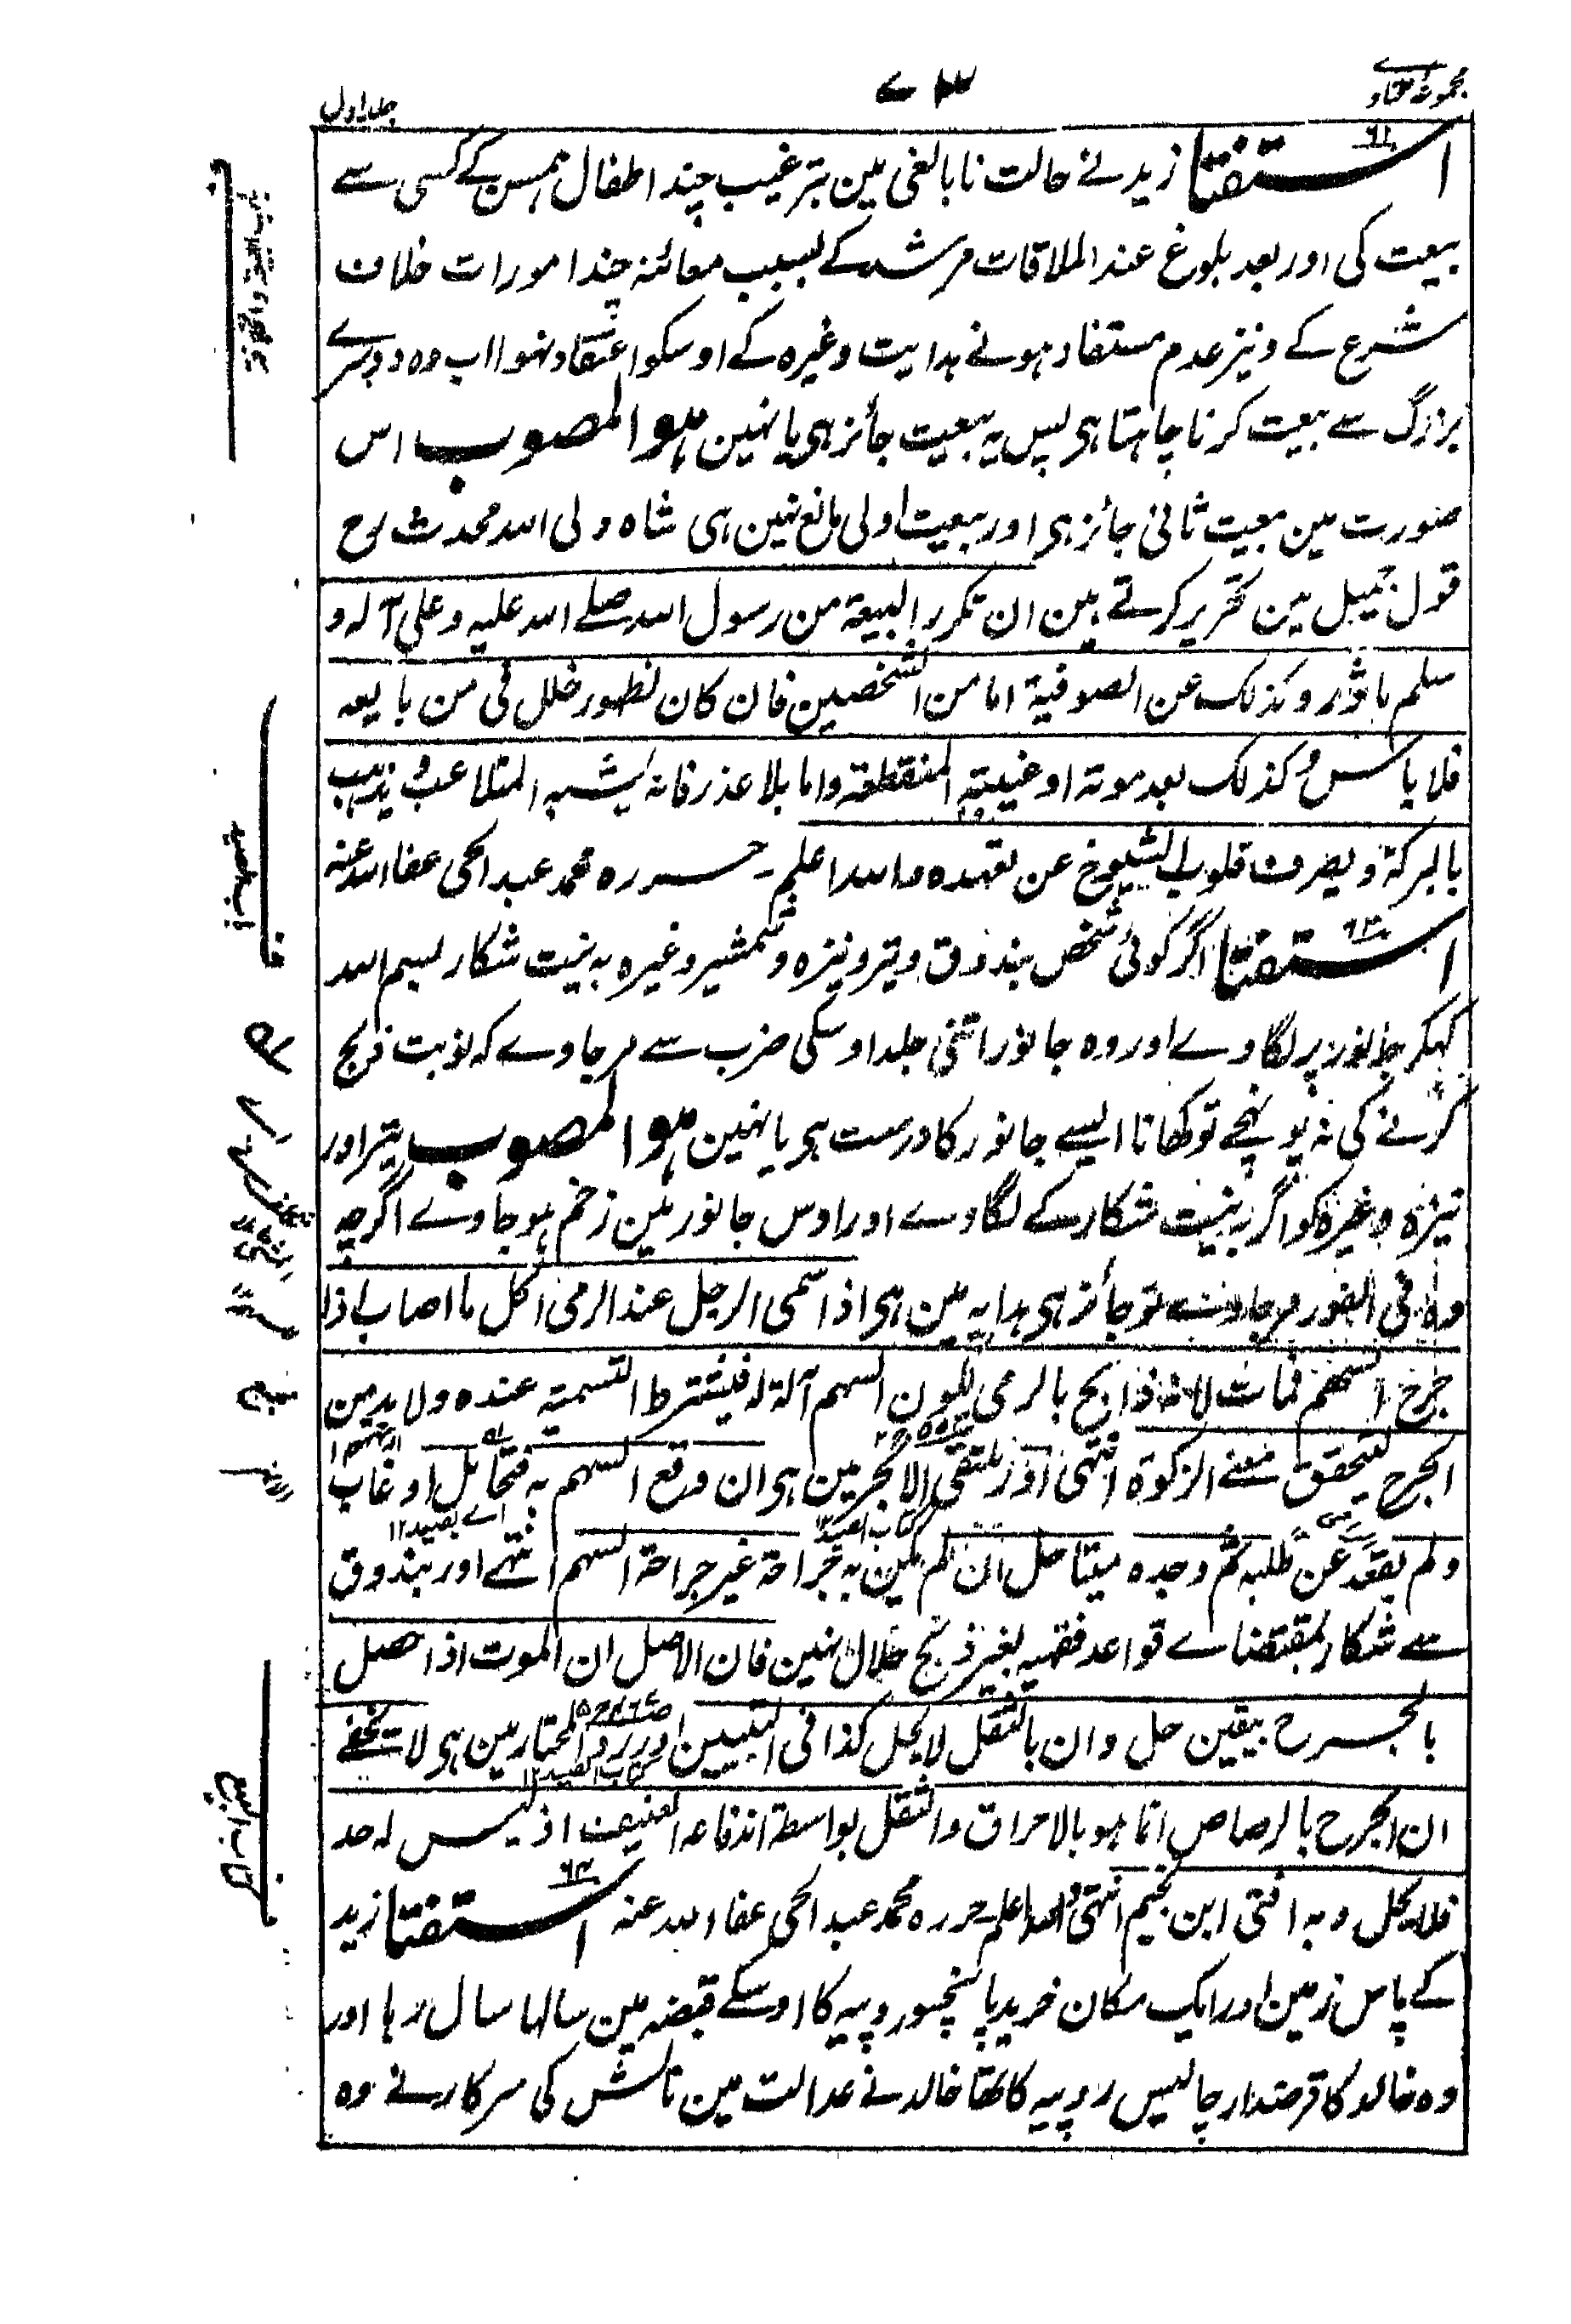 مجموعہ فتاوے
۷۳
جلد اول
۶۱
استفتا زید نے حالت نابالغی مین بترغیب چند اطفال ہمسن کے کسی سے
بیعت کی اور بعد بلوغ عند الملاقات مرشد کے بسبب معائنہ چند امورات خلاف
شرع کے ونیز عدم مستفاد ہونے ہدایت وغیرہ کے اوسکو اعتقاد نہوا اب وہ دوسرے
بزرگ سے بیعت کرنا چاہتا ہی پس یہ بیعت جائز ہی یا نہین ہو المصوب اس
صورت مین بیعت ثانی جائز ہی اور بیعت اولی مانع نہین ہی شاہ ولی اللہ محدث رح
قول جمیل مین تحریر کرتے ہین ان تکرر البیعة من رسول اللہ صلے اللہ علیہ وعلی آلہ و
سلم ماثور وکذلک عن الصوفیة اما من الشخصین فان کان لظهور خلل فی من بایعہ
فلا باس وکذلک بعد موتہ او غیبتہ المنقطعة واما بلا عذر فانہ یشبہ المتلاعب ویذهب
بالبرکة ویصرف قلوب الشیوخ عن تعهدہ واللہ اعلم۔ حررہ محمد عبد الحی عفا اللہ عنہ
۶۲
استفتا اگر کوئی شخص بندوق وتیر ونیزہ وشمشیر وغیرہ بہ نیت شکار بسم اللہ
کہکر جانور پر لگاوے اور وہ جانور اتنی جلد اوسکی ضرب سے مرجاوے کہ نوبت ذبح
کرنے کی نہ پونچے تو کھانا ایسے جانور کا درست ہی یا نہین ہو المصوب تیر اور
نیزہ وغیرہ کو اگر بہ نیت شکار کے لگاوے اور اوس جانور مین زخم ہوجاوے اگرچہ
وہ فی الفور مرجاوے تو جائز ہی ہدایہ مین ہی اذا سمی الرجل عند الرمی اکل ما اصاب اذا
جرح السهم فمات لانہ ذابح بالرمی لکون السهم آلة لہ فیشترط التسمیة عندہ ولابد من
الجرح لتحقق معنے الزکوة انتهی اور ملتقی الابحر مین ہی ان وقع السهم بہ فتحامل او غاب
کتاب الصید
اے بصید ۱۲
ولم یقعد عن طلبہ ثم وجدہ میتا حل ان لم یکن بہ جراحة غیر جراحة السهم انتہے اور بندوق
سے شکار بمقتضاے قواعد فقہیہ بغیر ذبح حلال نہین فان الاصل ان الموت اذا حصل
بالجرح بیقین حل وان بالثقل لا یحل کذا فی التبیین اور رد المحتار مین ہی لا یخفے
کتاب الصید ۱۲
ان الجرح بالرصاص انما هو بالاحراق والثقل بواسطة اندفاعہ العنیف اذ لیس لہ حد
فلا یحل وبہ افتی ابن نجیم انتهی واللہ اعلم حررہ محمد عبد الحی عفا اللہ عنہ
۶۳
استفتا زید
کے پاس زمین اور ایک مکان خرید پانچسو روپیہ کا اوسکے قبضہ مین سالہا سال رہا اور
وہ خالد کا قرضدار چالیس روپیہ کا تھا خالد نے عدالت مین نالش کی سرکار نے وہ